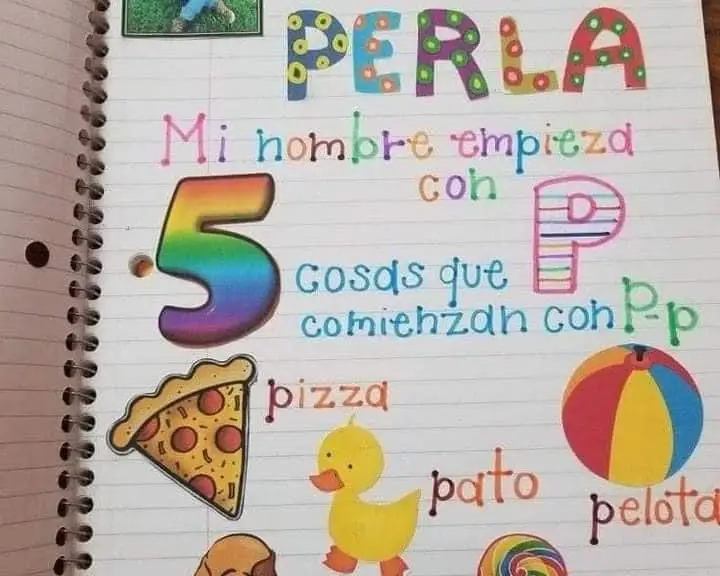 PERLA
Mi nombre empieza
con P
5 cosas que
comienzan con P-p
pizza
pato
pelota